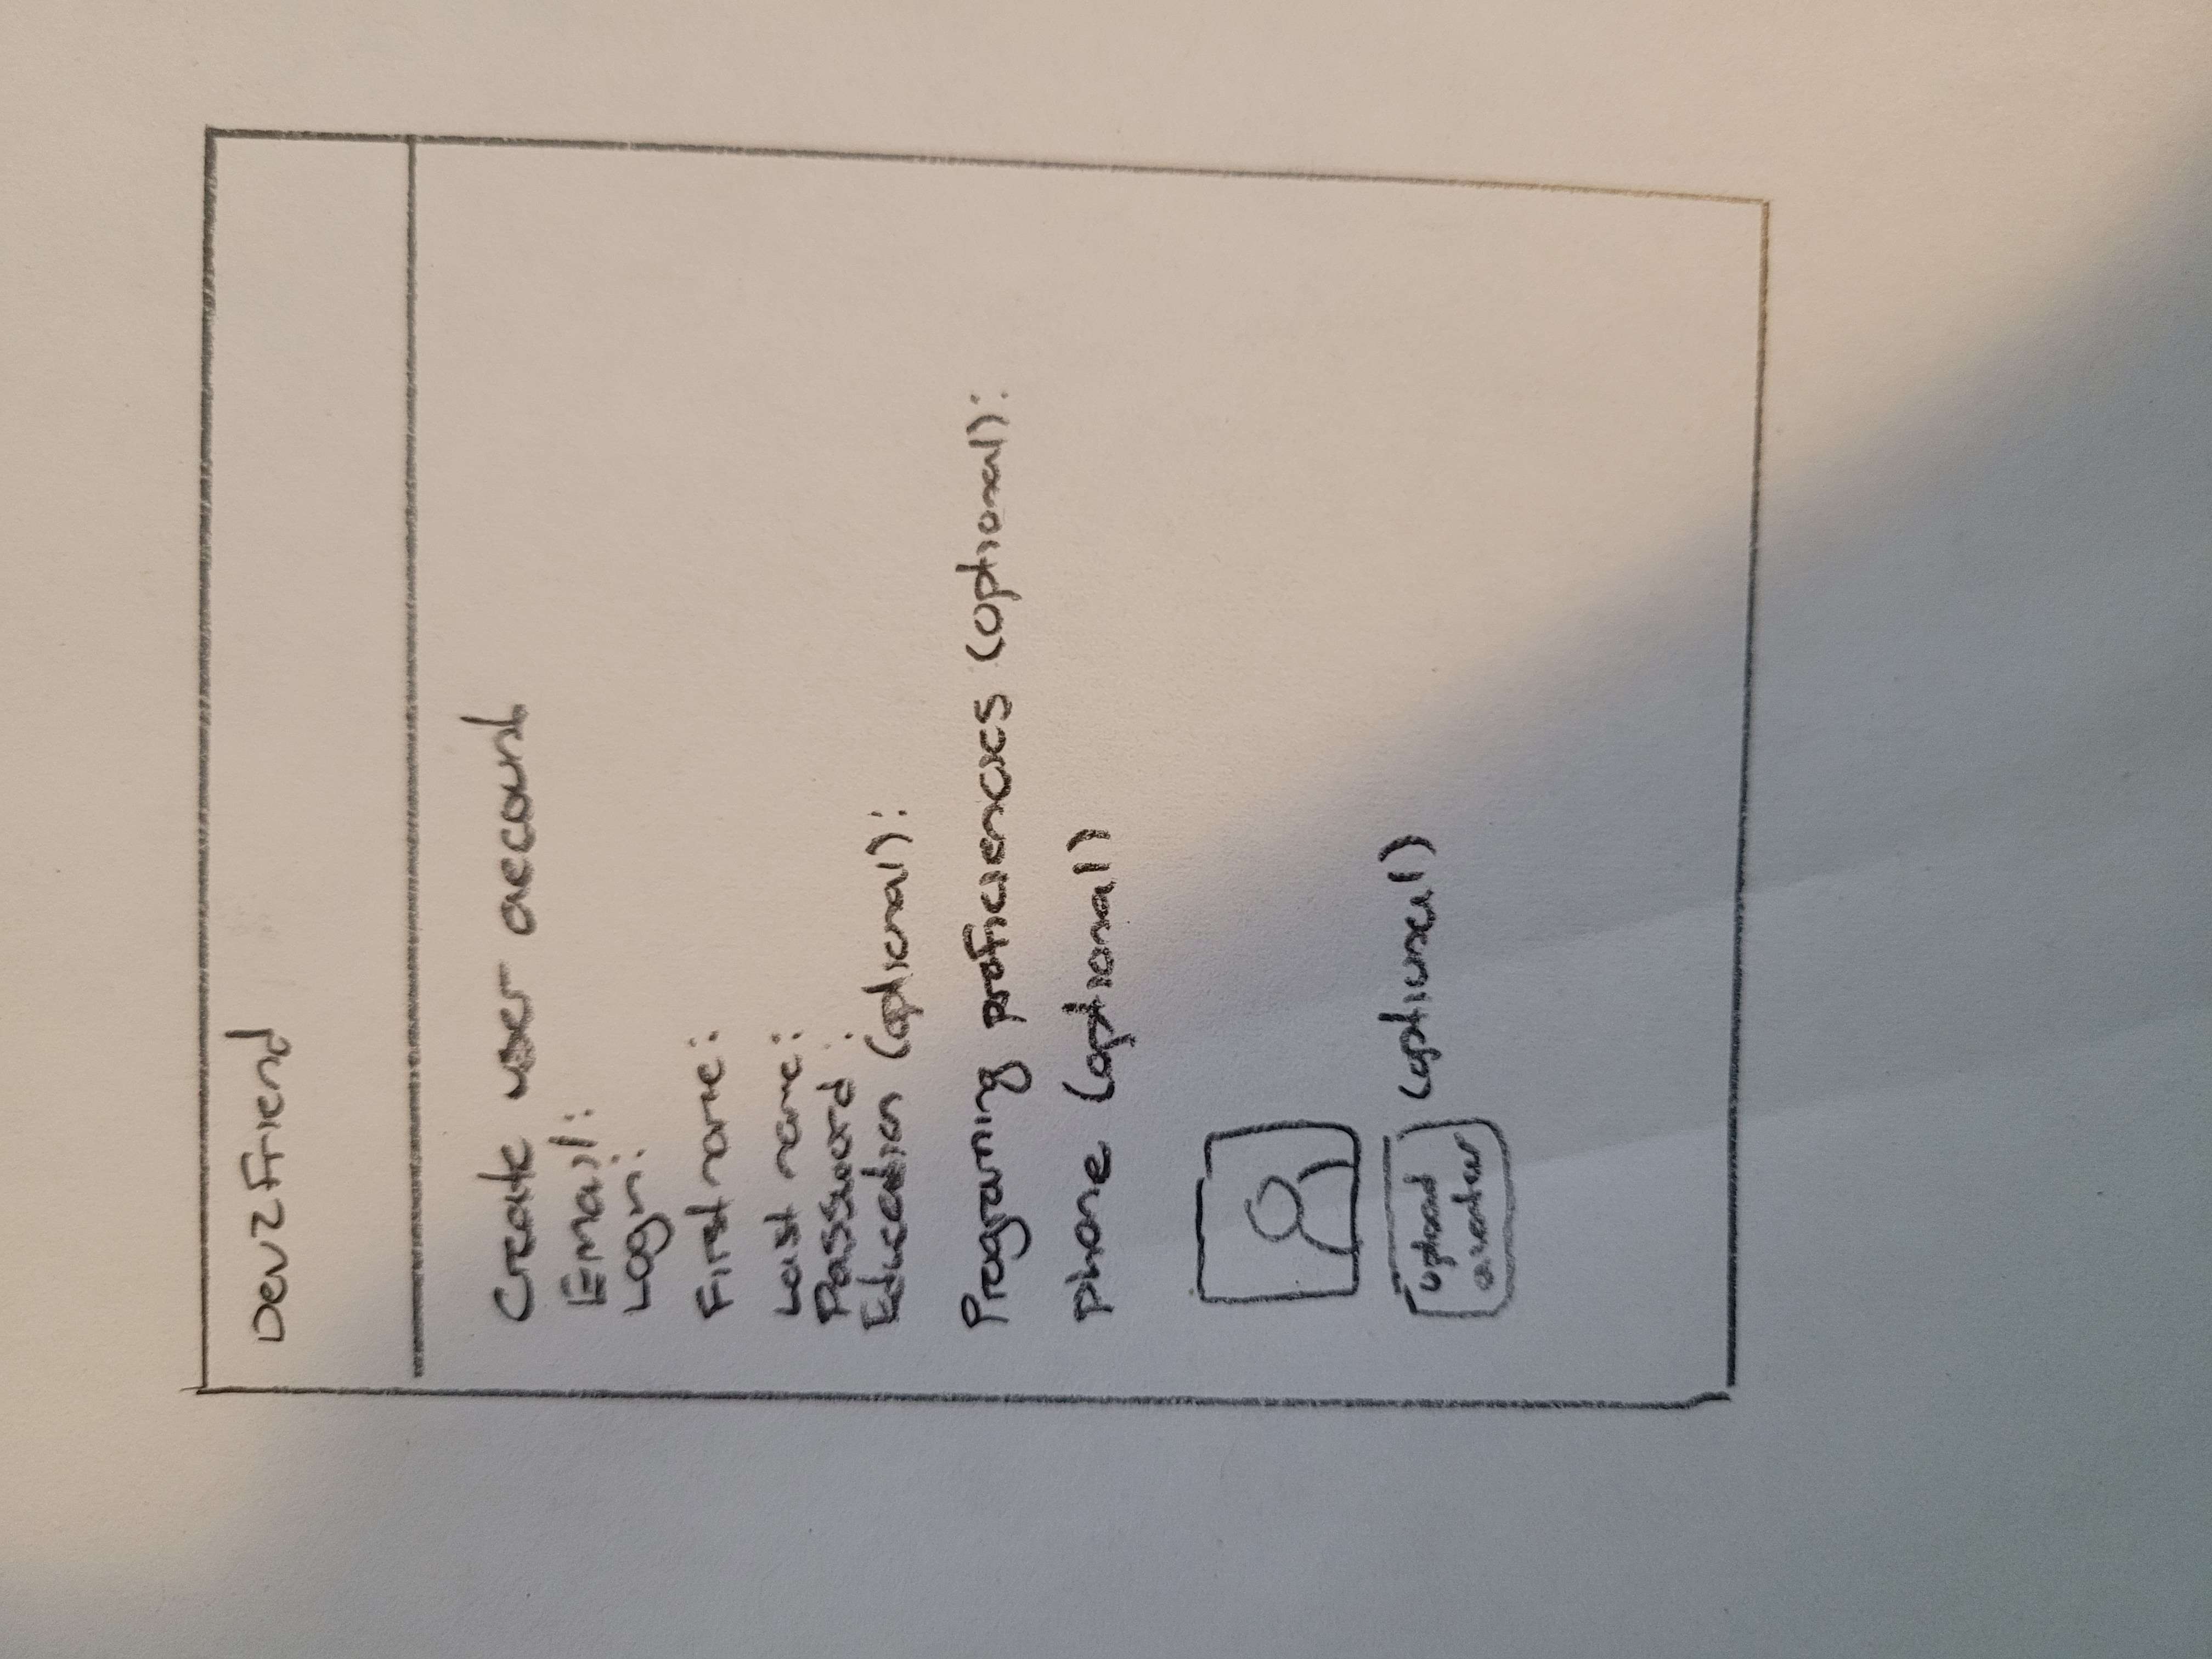 Dev2Friend
Create user account
Email:
Login:
First name:
Last name:
Password :
Education (optional):
Programing proficiencies (optional):
phone (optional)
upload
avatar
(optional)